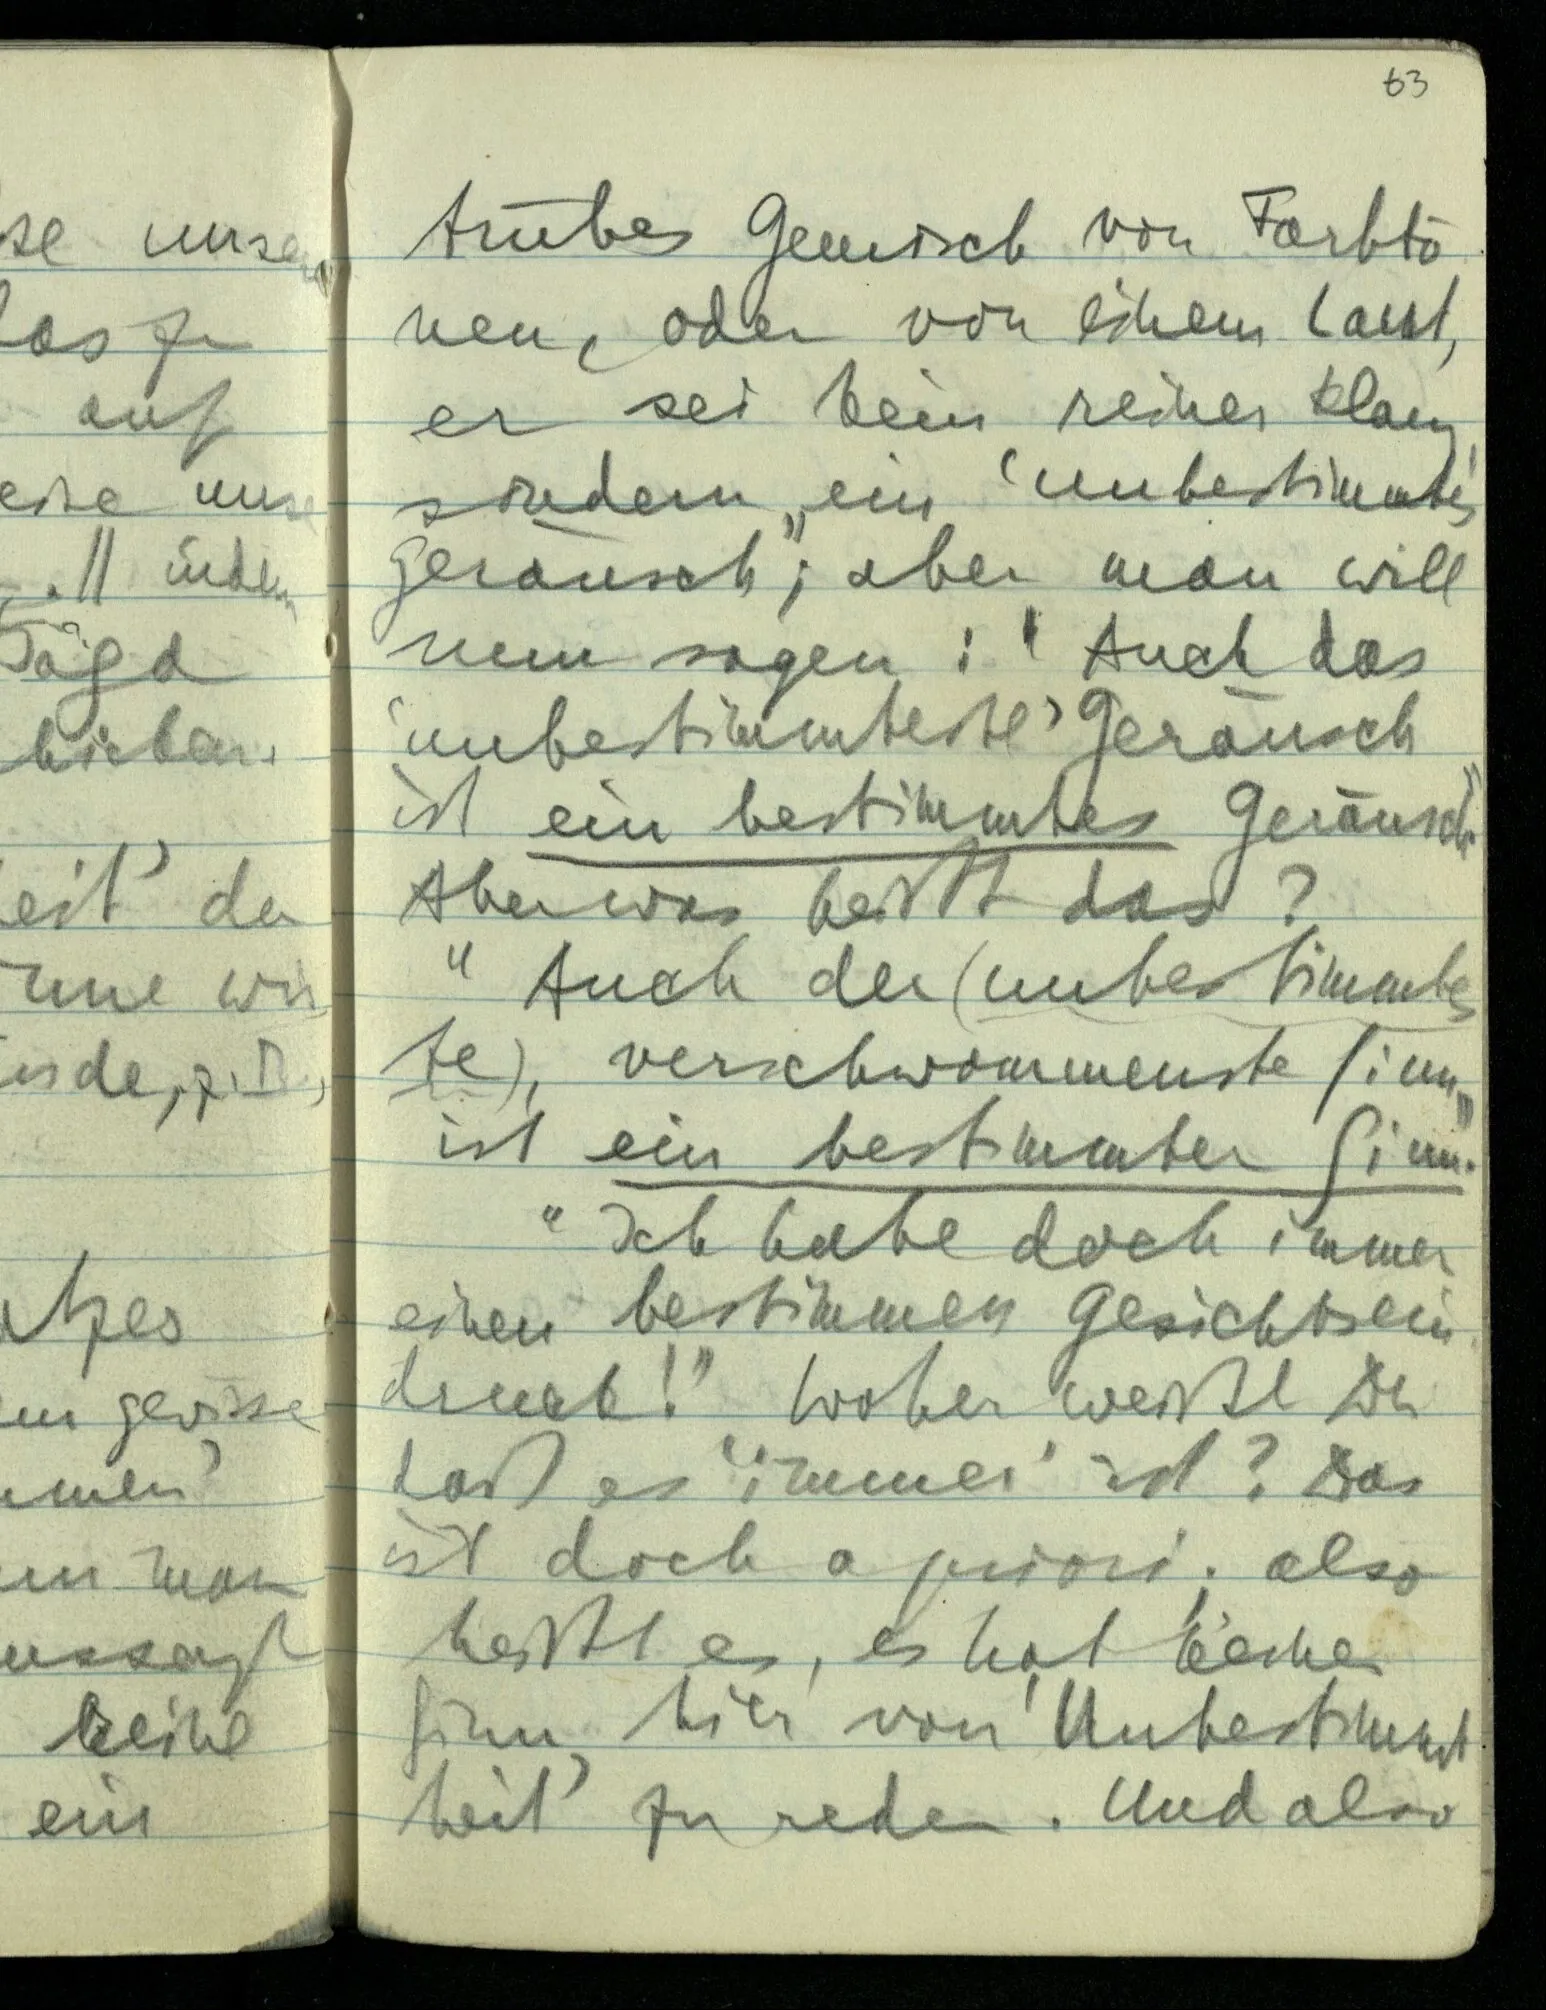 63
se unse
das zu
auf
eise uns
. || indem
Jagd
trübes Gemisch von Farbtö
nen, oder von einem Laut,
er sei kein reiner Klang,
sondern „ein ‘unbestimmtes
Geräusch”; aber man will
nun sagen: “Auch das
‘unbestimmteste’ Geräusch
ist ein bestimmtes Geräusch”.
Aber was heißt das?
“Auch der (unbestimmtes
te), verschwommenste Sinn
ist ein bestimmter Sinn”.
“Ich habe doch immer
einen bestimmen Gesichtsein
druck!” Woher weißt Du
daß es ‘immer’ ist? Das
ist doch a priori; also
heißt es, es hat keinen
Sinn, hier von ‘Unbestimmt
heit’ zu reden. Und also
heit’ der
wir
nde, z.B.,
atzes
gewisse
mmen’
man
ussagt
keine
ein